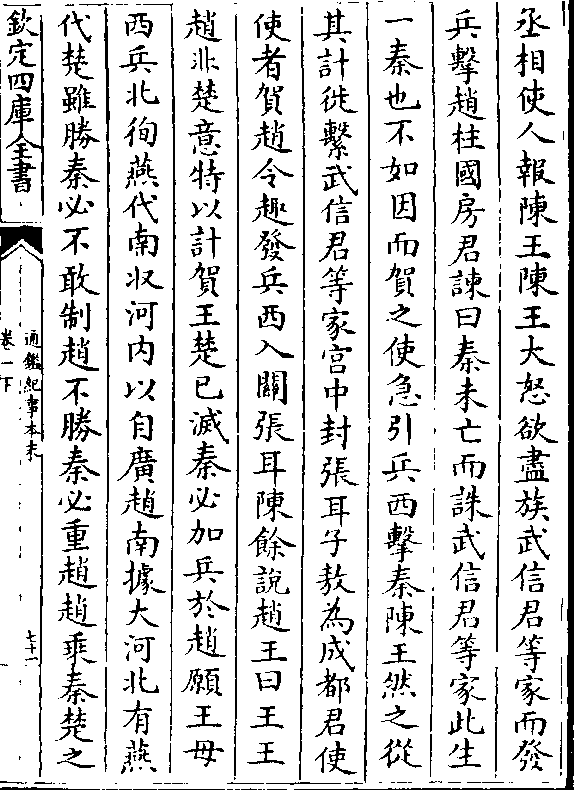 丞相使人報陳王陳王大怒欲盡族武信君等家而發
兵擊趙柱國房君諫曰秦未亡而誅武信君等家此生
一秦也不如因而賀之使急引兵西擊秦陳王然之從
其計徙繫武信君等家宫中封張耳子敖為成都君使
使者賀趙令趣發兵西入關張耳陳餘說趙王曰王王
趙非楚意特以計賀王楚已滅秦必加兵於趙願王毋
西兵北徇燕代南收河内以自廣趙南據大河北有燕
代楚雖勝秦必不敢制趙不勝秦必重趙趙乘秦楚之
欽定四庫全書
通鑑紀事本末
卷一下
七十一